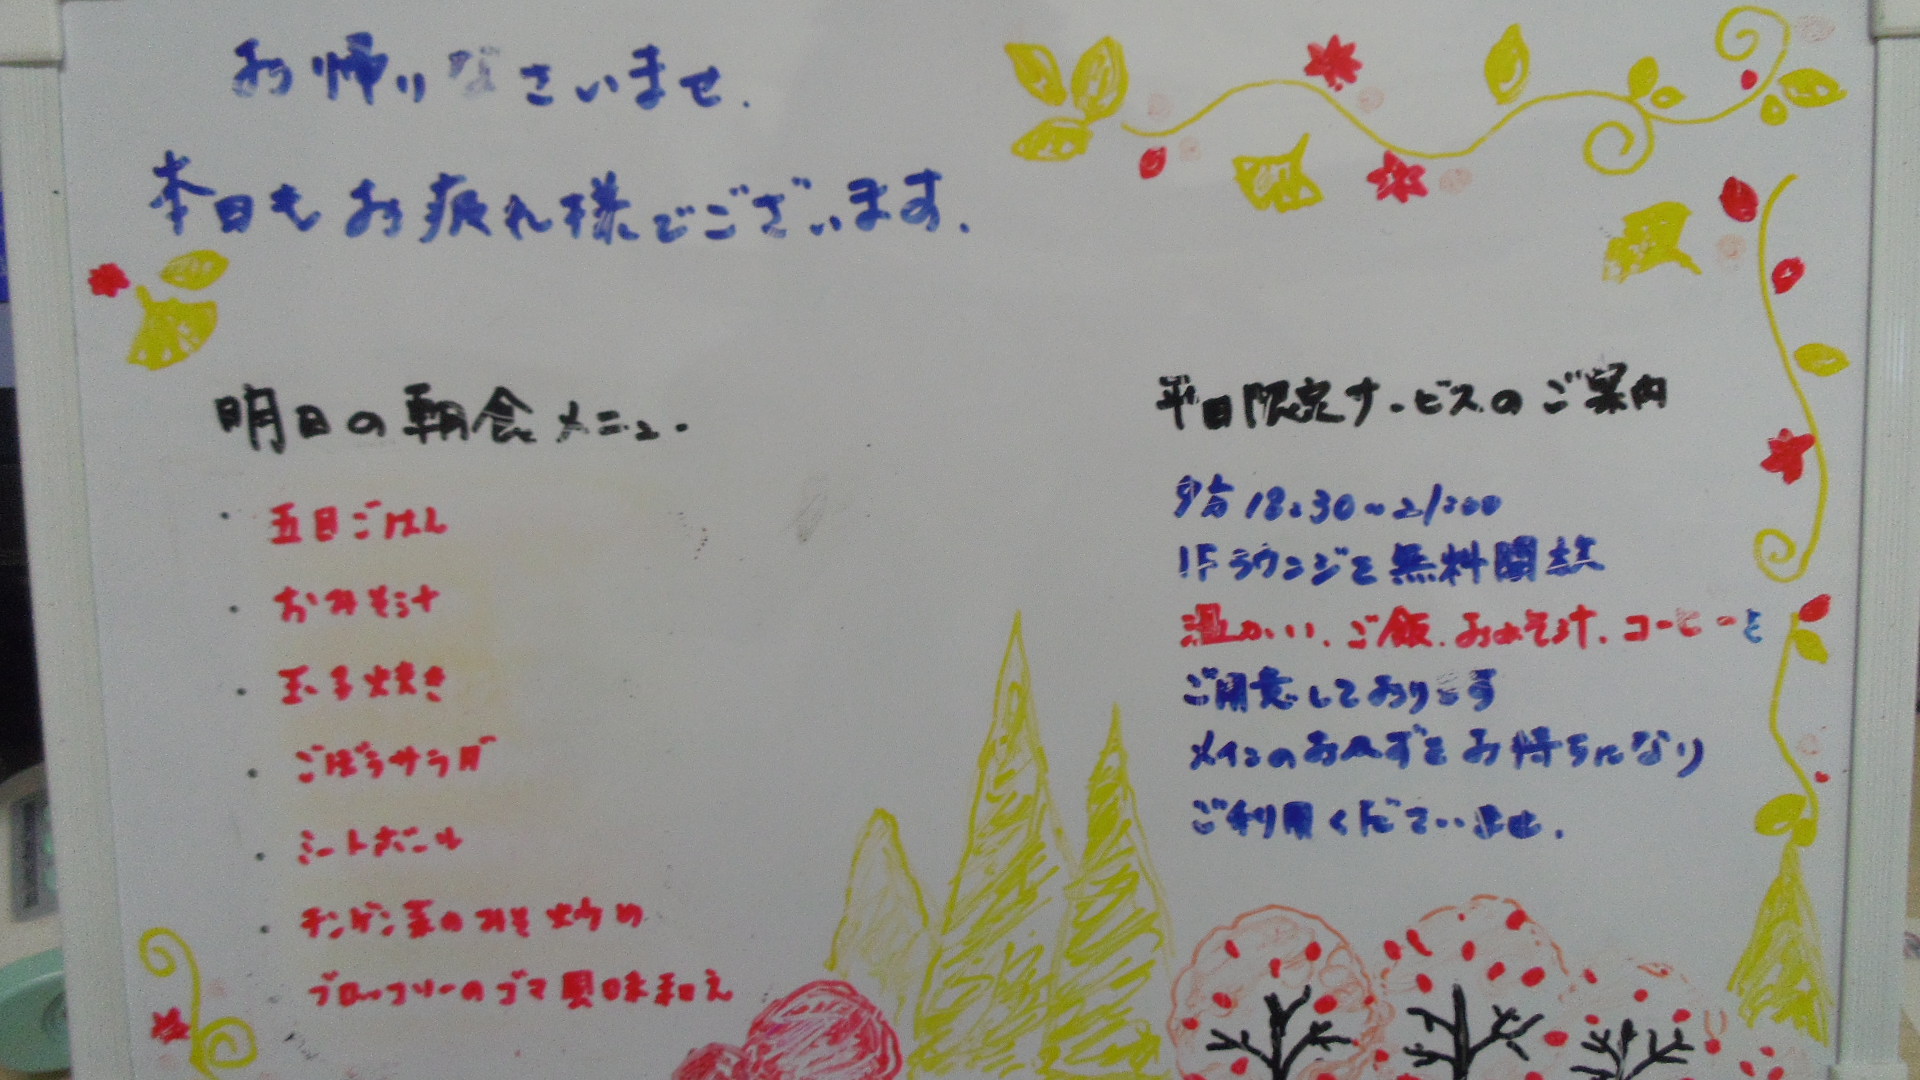 お帰りなさいませ.
本日もお疲れ様でございます.
明日の朝食メニュー
・五目ごはん
・おみそ汁
・玉子焼き
・ごぼうサラダ
・ミートボール
・チンゲン菜のみそ炒め
ブロッコリーのゴマ風味和え
平日限定サービスのご案内
夕方18:30~21:00
1Fラウンジを無料開放
温かい、ご飯、おみそ汁、コーヒーを
ご用意しております
メインのおかずをお持ちになり
ご利用くださいませ.